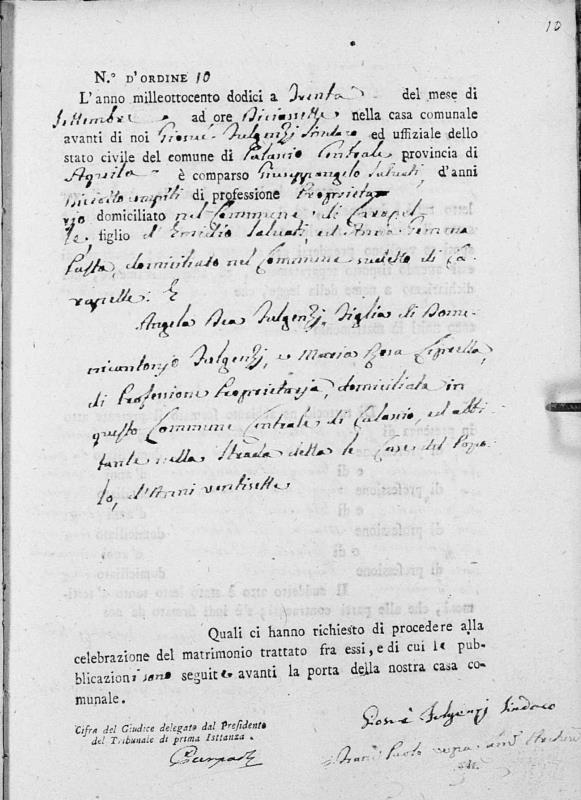 10
N.° D'ORDINE 10
L'anno milleottocento dodici a Trenta del mese di
Settembre ad ore Diciassette nella casa comunale
avanti di noi Giosuè Fulgenzj Sindaco ed uffiziale dello
stato civile del comune di Calascio Centrale provincia di
Aquila è comparso Giuseppangelo Salvati, d'anni
Diciotto compiti di professione Proprieta
rio domiciliato nel Commune di Carapel
le figlio d'Emidio Salvati, ed Anna Gemma
domiciliato nel Commune sudetto di Ca
rapelle: E
Angela Dea Fulgenzj, Figlia di Dome-
nicantonjo Fulgenzj, e Maria Rosa
di Professione Proprietaria, domiciliata in
questo Commune Centrale di Calascio, ed abi
tante nella Strada detta le Case del Popo-
lo, d'Anni ventisette
Quali ci hanno richiesto di procedere alla
celebrazione del matrimonio trattato fra essi, e di cui le pub-
blicazioni sono seguite avanti la porta della nostra casa co-
munale.
Cifra del Giudice delegato dal Presidente
del Tribunale di prima Isttanza.
Giosuè Fulgenzj Sindaco